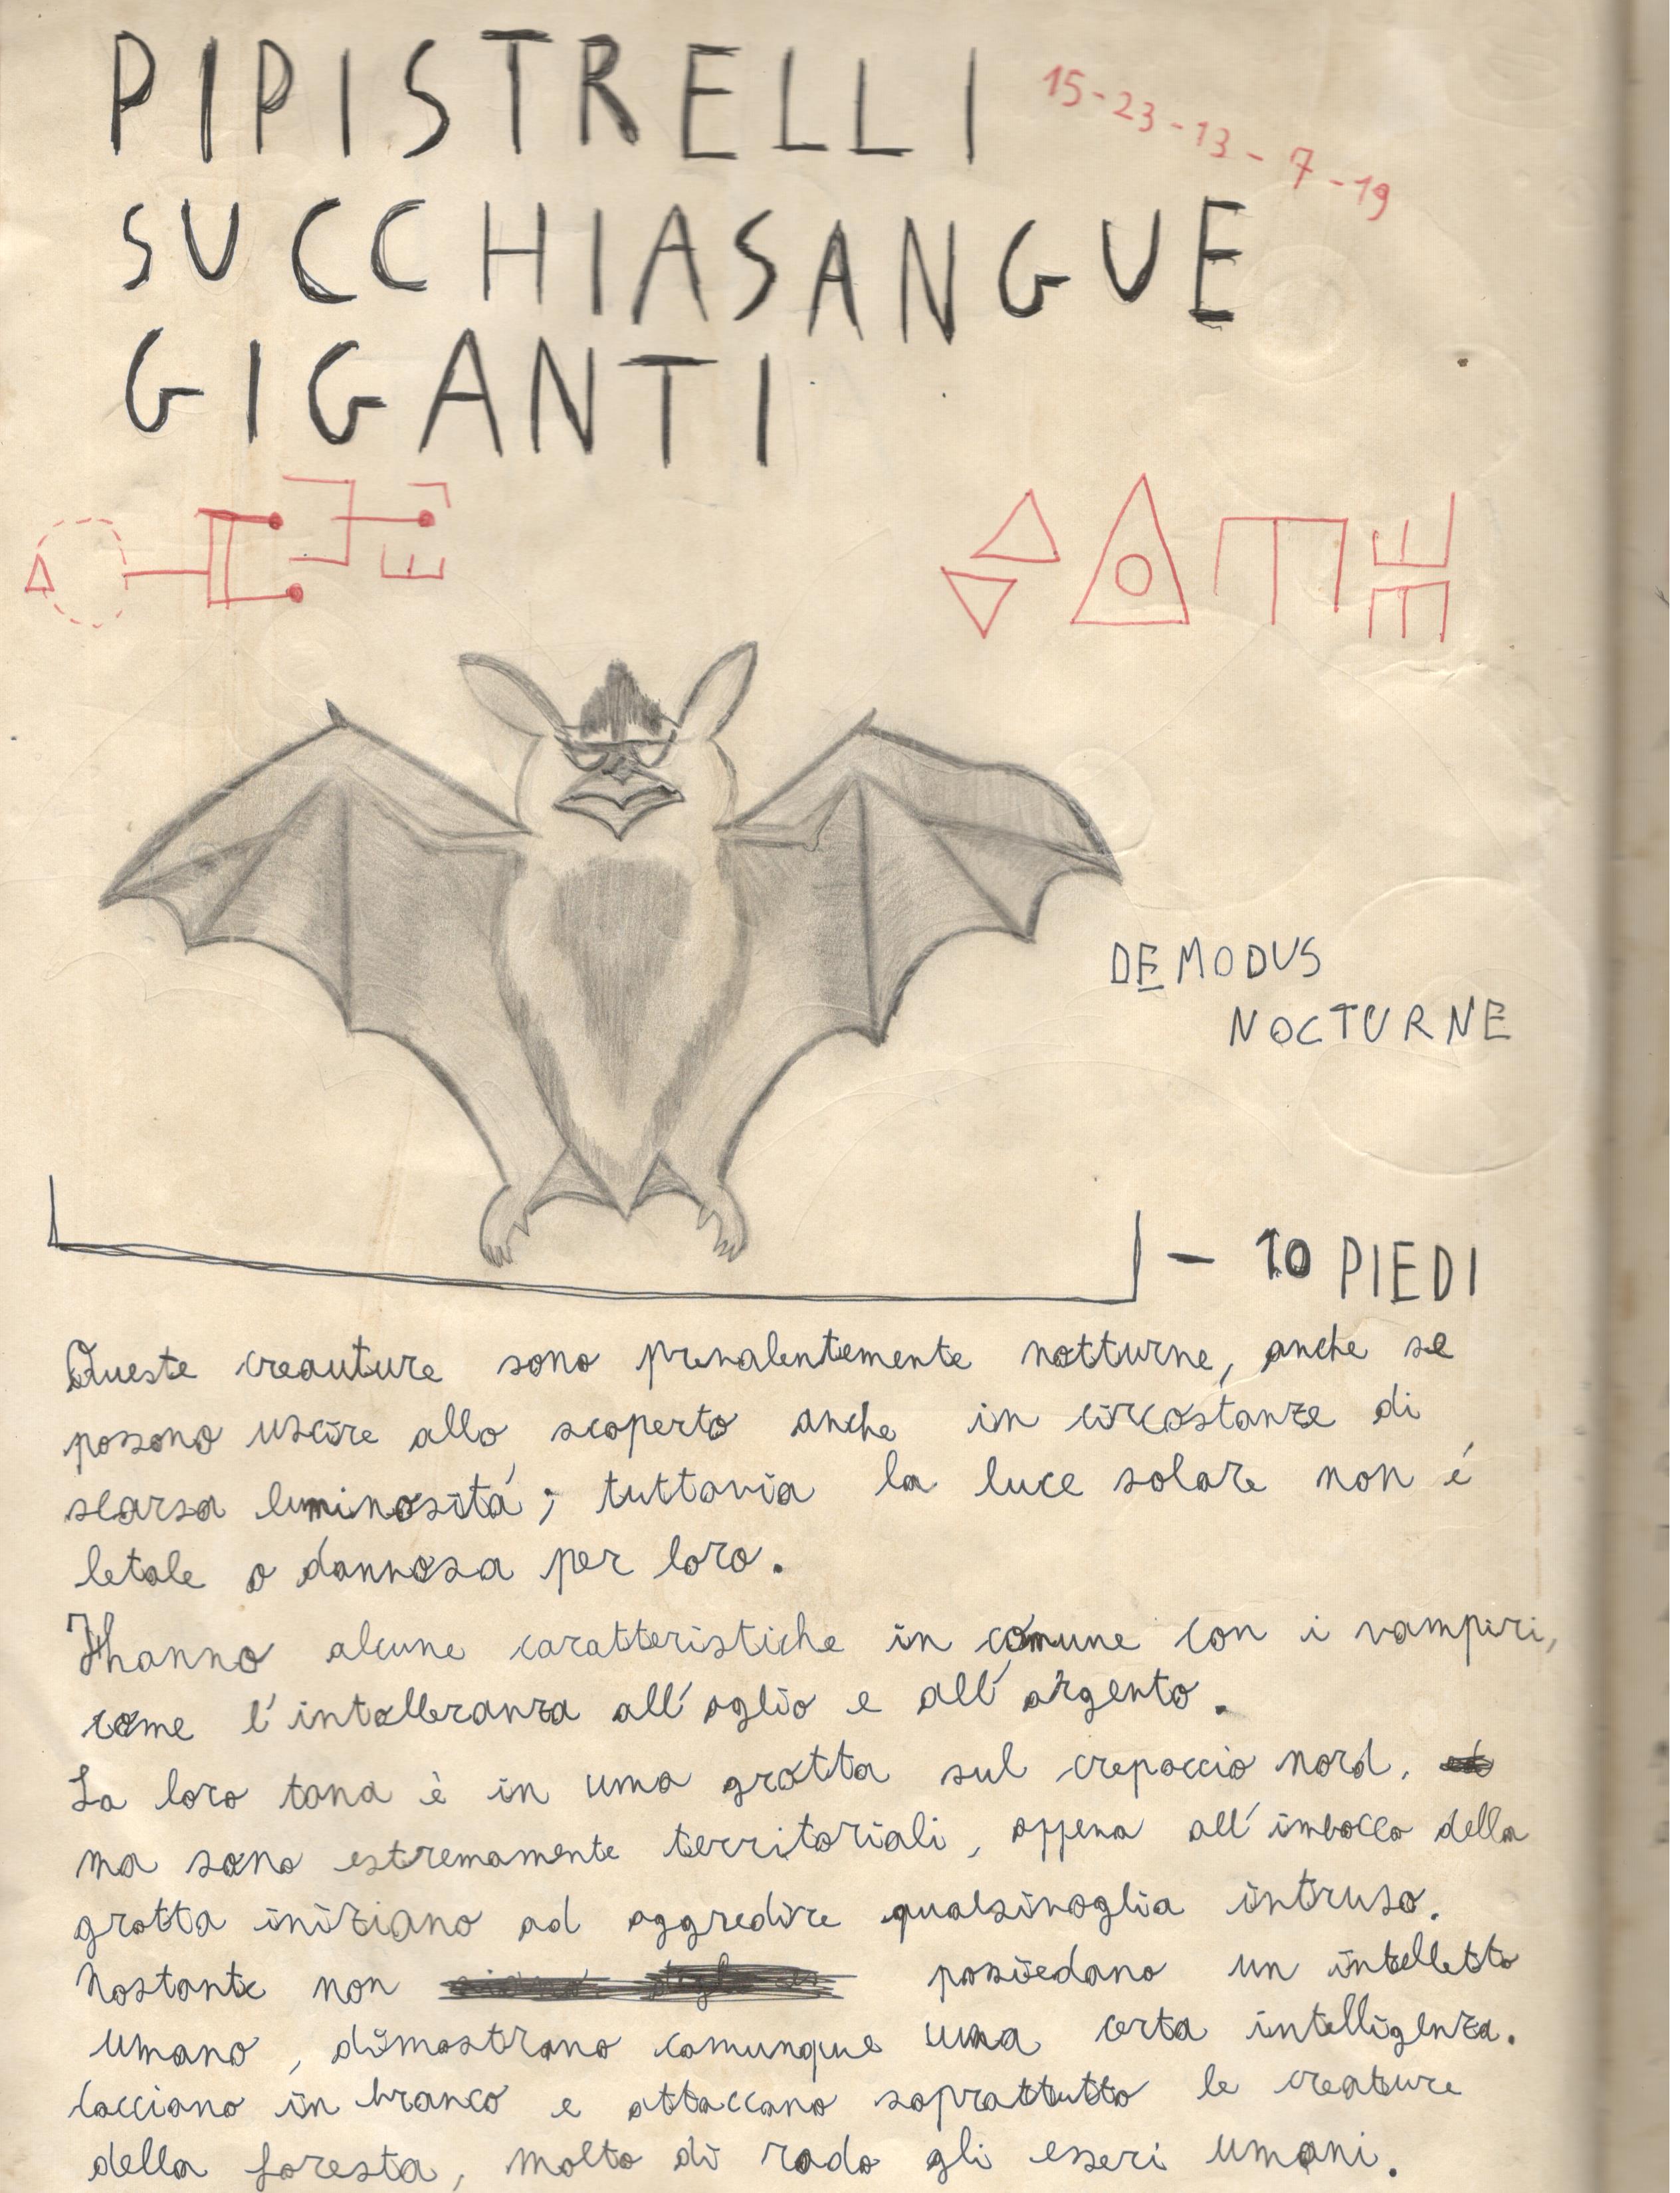 PIPISTRELLI
15-23-13-7-19
SUCCHIASANGUE
GIGANTI
DEMODUS
NOCTURNE
- 10 PIEDI
Queste creauture sono prevalentemente notturne, anche se
possono uscire allo scoperto anche in circostanze di
scarsa luminositá; tuttavia la luce solare non é
letale o dannosa per loro.
Hanno alcune caratteristiche in comune con i vampiri,
come l'intolleranza all'aglio e all'argento.
La loro tana è in una grotta sul crepaccio nord,
ma sono estremamente territoriali, appena all'imbocco della
grotta iniziano ad aggredire qualsivoglia intruso.
Nostante non possiedano un intelletto
umano, dimostrano comunque una certa intelligenza.
Cacciano in branco e attaccano soprattutto le creature
della foresta, molto di rado gli esseri umani.